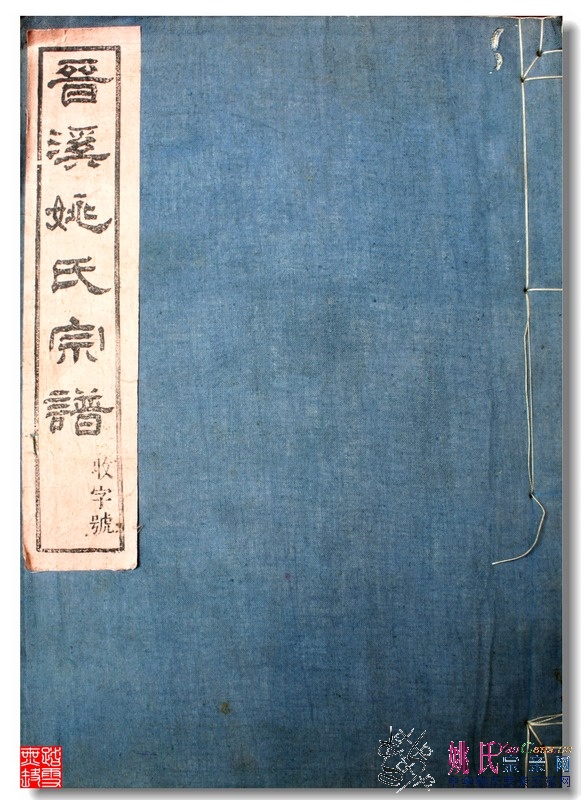 晉溪姚氏宗譜
收字號
姚氏宗亲网